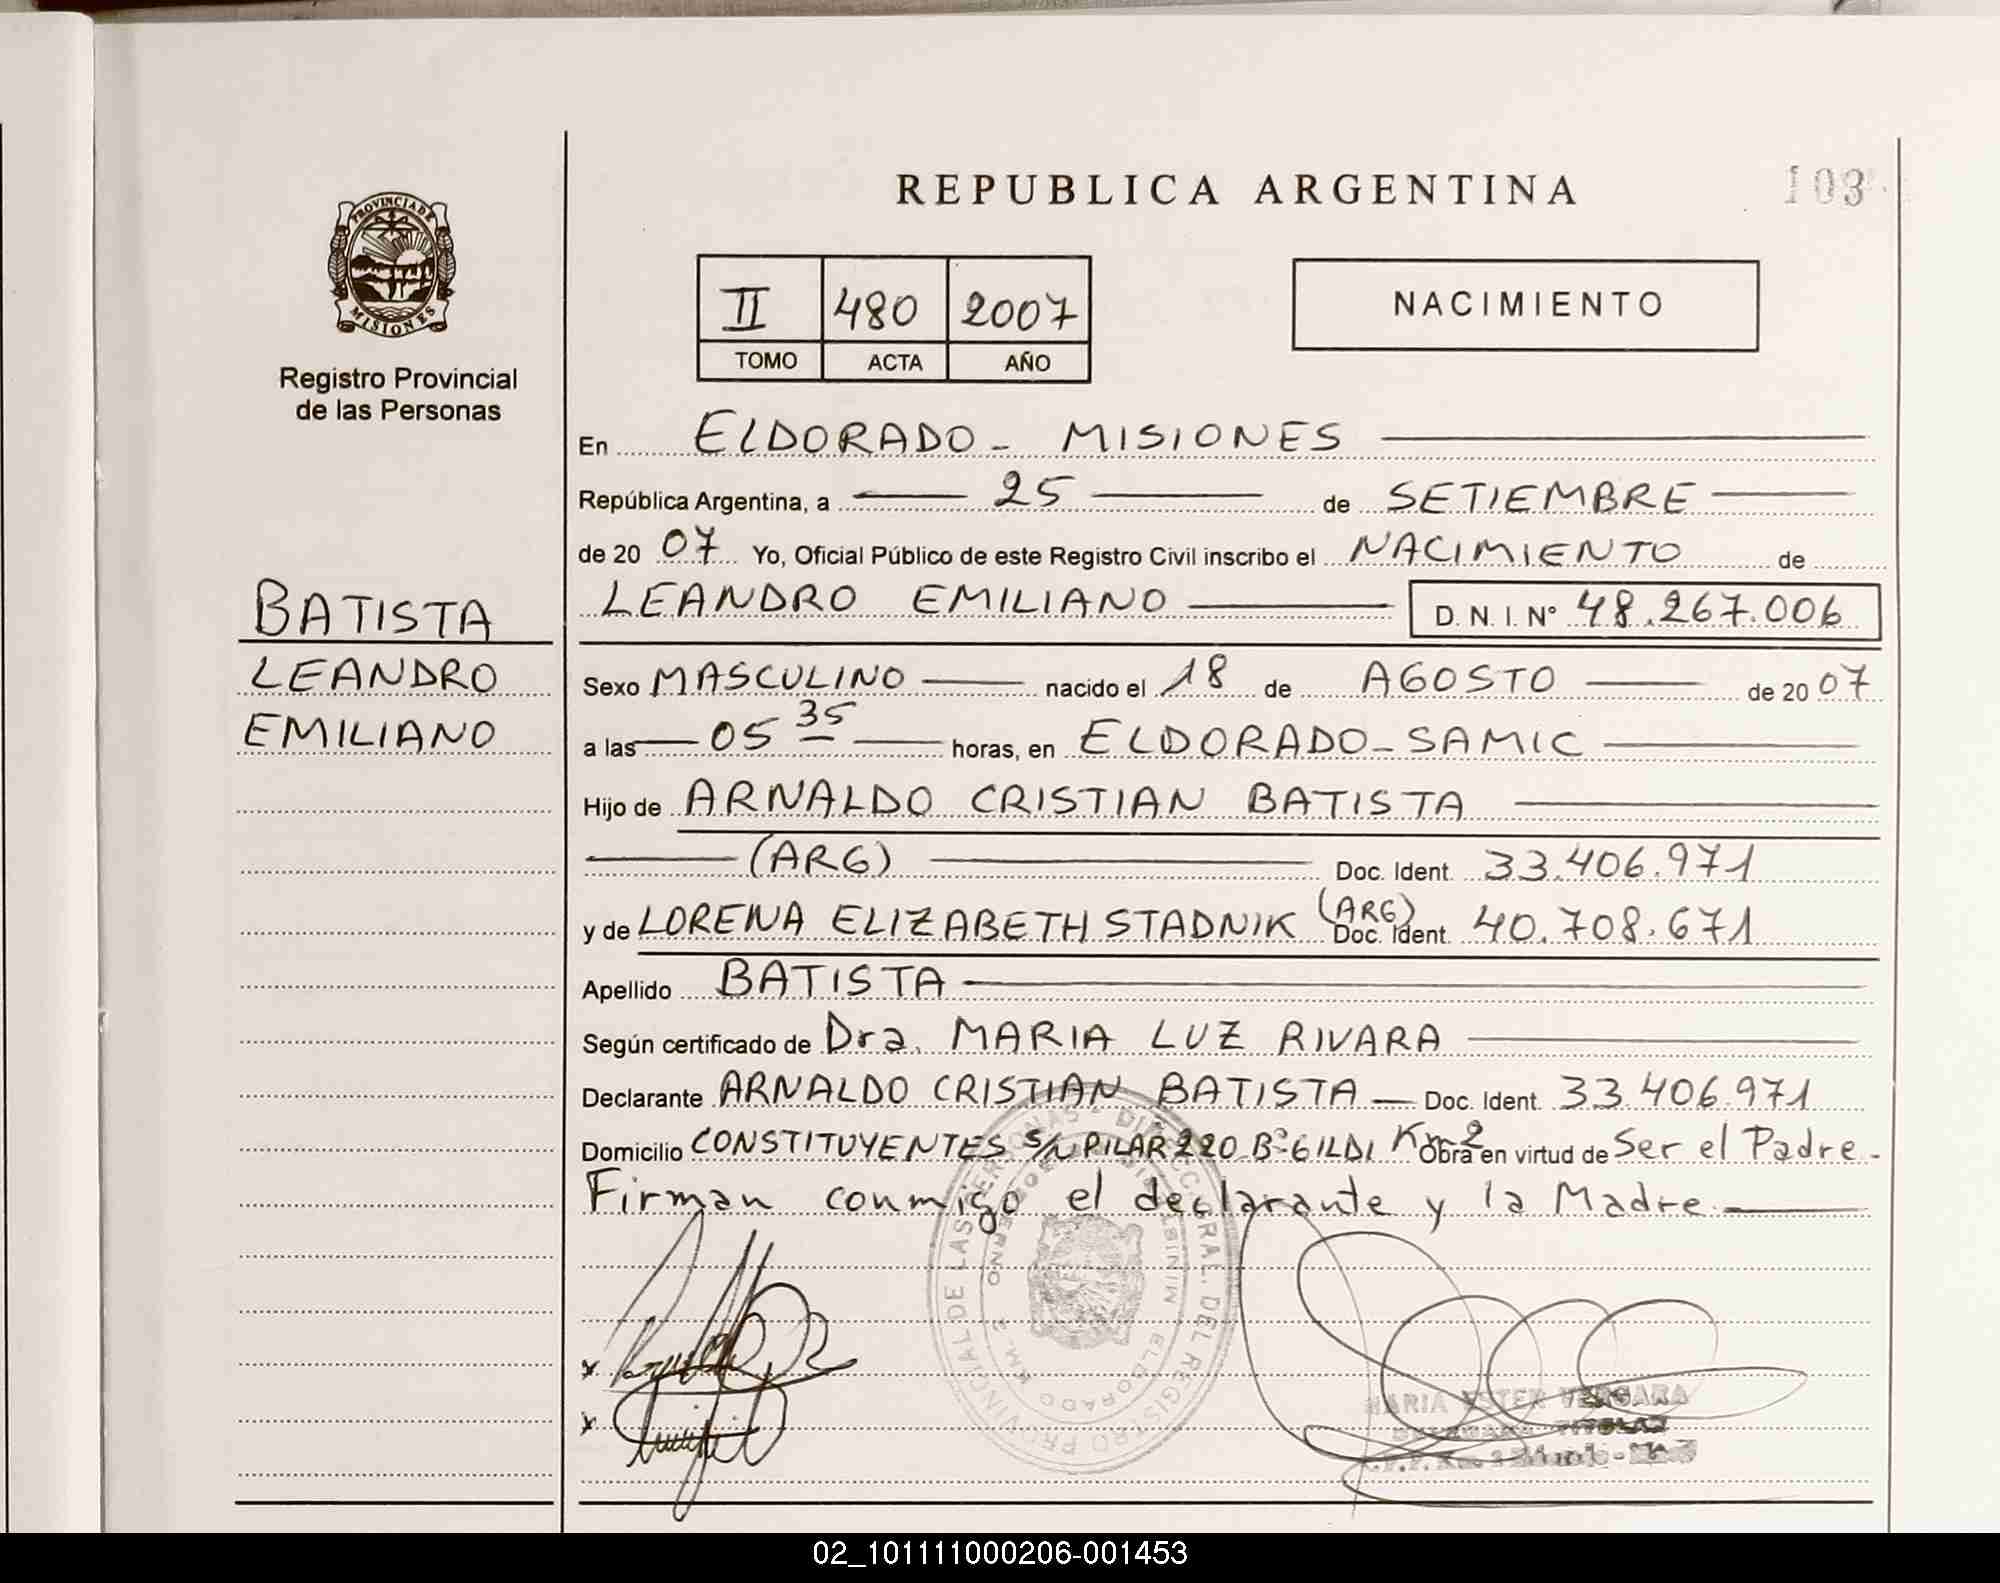 REPUBLICA ARGENTINA
103
PROVINCIA DE
MISIONES
Registro Provincial
de las Personas
II 480 2007
TOMO ACTA AÑO
NACIMIENTO
En ELDORADO - MISIONES
República Argentina, a 25 de SETIEMBRE
de 20 07 Yo, Oficial Público de este Registro Civil inscribo el NACIMIENTO de
LEANDRO EMILIANO D. N. I. Nº 48.267.006
BATISTA
LEANDRO
EMILIANO
Sexo MASCULINO nacido el 18 de AGOSTO de 20 07
a las 05 35 horas, en ELDORADO-SAMIC
Hijo de ARNALDO CRISTIAN BATISTA
(ARG) Doc. Ident. 33.406.971
y de LORENA ELIZABETH STADNIK (ARG) Doc. Ident. 40.708.671
Apellido BATISTA
Según certificado de Dra. MARIA LUZ RIVARA
Declarante ARNALDO CRISTIAN BATISTA Doc. Ident. 33.406.971
Domicilio CONSTITUYENTES S/N PILAR 220 Bº GILDI Km 2 Obra en virtud de Ser el Padre.
Firman conmigo el declarante y la Madre
MARIA ESTER VERGARA
TITULAR
02_101111000206-001453